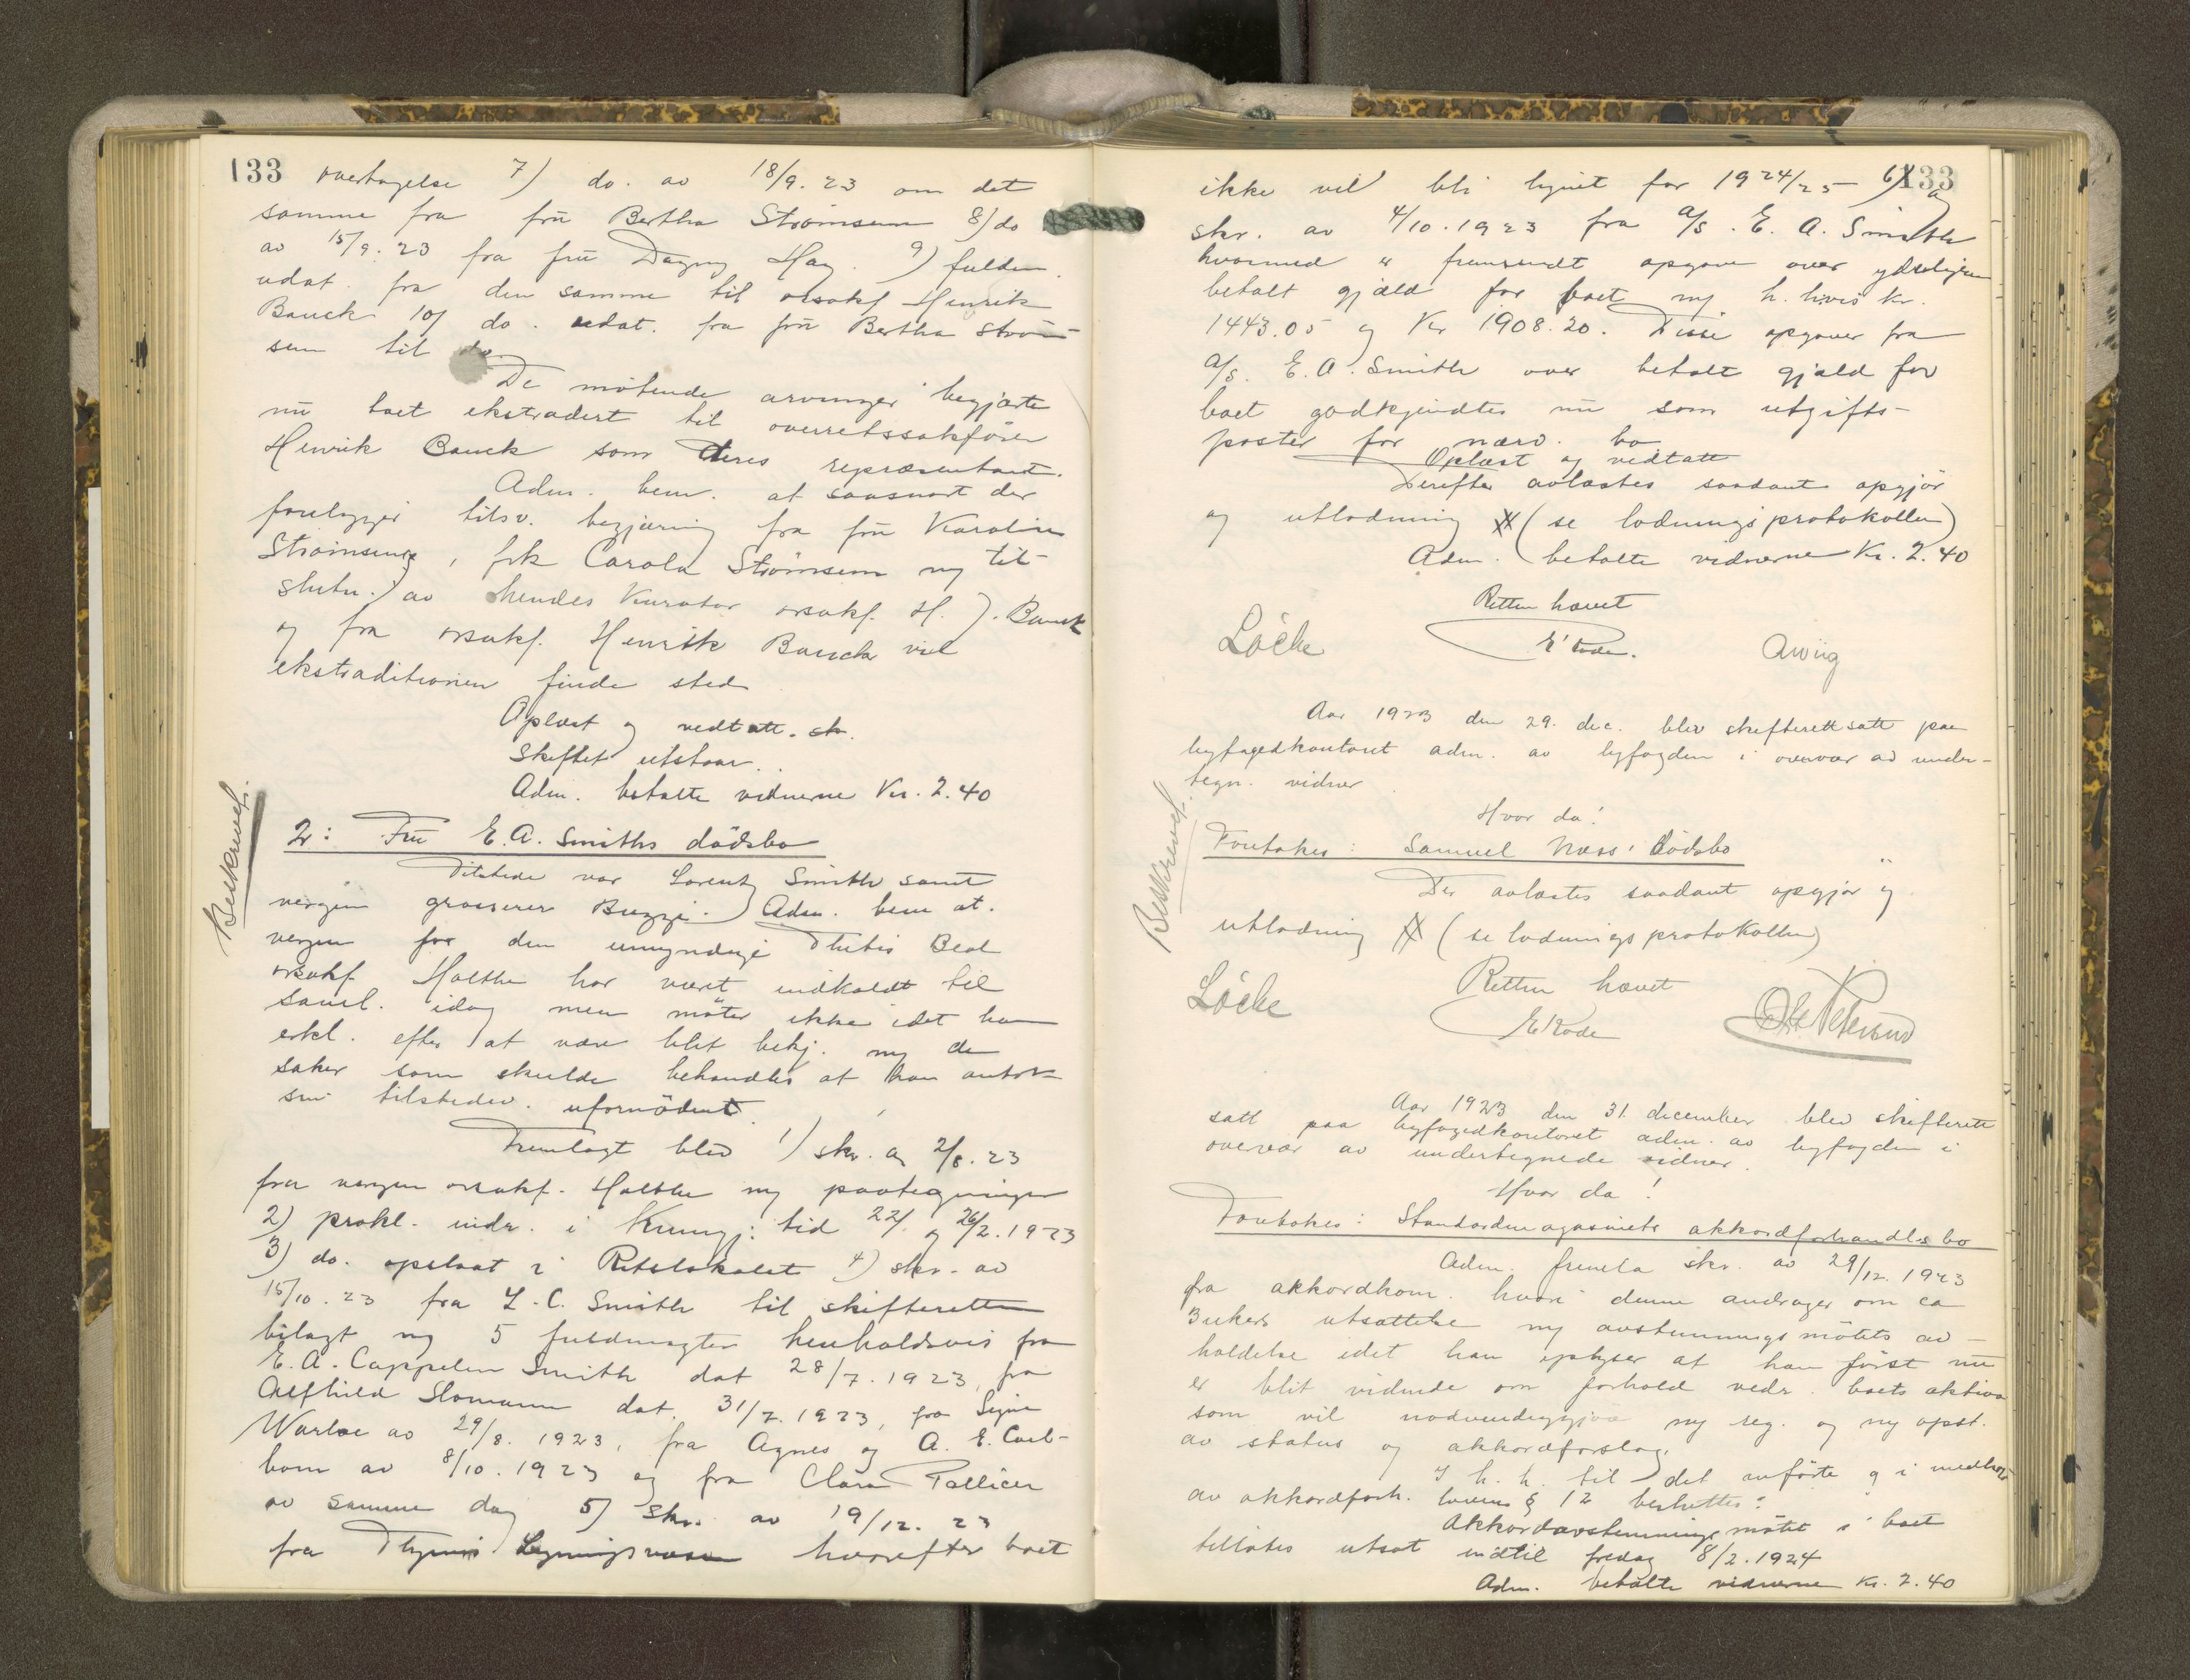 133 overtagelse 7) do. av 18/9. 23 om det
samme fra frü Bertha Strömsem 8) do
av 15/9. 23 fra frü Dagny Hay. 9) fuldm.
udat. fra den samme til orsakf Henrik
Bauck 10) do. udat. fra frü Bertha Ström-
sem til do.
De mötende arvinger begjærte
nu boet ekstradert til overretssakförer
Henrik Bauck som deres repræsentant.
Adm. bem. at saasnart der
foreligger tilsv. begjæring fra frü Karoline
Strömsem, frk Carola Strömsem m/ til-
slutn. av hendes Kurator orsakf. H. J. Bauck
og fra orsakf. Henrik Bauck vil
ekstraditionen finde sted
Oplæst og vedtatt.
Skiftet utstaar.
Adm. betalte vidnerne Kr. 2.40
Beskrevet.
2: Frü E. A. Smiths dödsbo
Tilstede var Lorentz Smith samt
vergen grosserer Buzzi. Adm. bem at.
vergen for den umyndige Thetis Beal
orsakf Holthe har været indkaldt til
saml. idag men möter ikke idet han
erkl. efter at være blit bekj. m/ de
saker som skulde behandles at han antok
sin tilstedev. ufornödent.
Fremlagt blev 1) skr. av 2/8. 23
fra vergen orsakf. Holthe m/ paategninger
2) prokl. indr. i Kunngj: tid 22/ og 26/2. 1923
3) do. opslaat i Retslokalet 4) skr. av
15/10. 23 fra L. C. Smith til skifteretten
bilagt m/ 5 fuldmagter henholdsvis fra
E. A. Cappelen Smith dat 28/7. 1923, fra
Alfhild Slomann dat. 31/7. 1923, fra Signe
Warloe av 29/8. 1923, fra Agnes og A. E. Carl-
bom av 8/10. 1923 og fra Clara Pallicer
av samme dag 5) Skr. av 19/12. 23
fra Thjems Ligningsvæsen hvorefter boet
133
ikke vil bli lignet for 1924/25 6)
skr. av 4/10. 1923 fra a/s. E. A. Smith
hvormed er fremsendt opgave over yderligere
betalt gjæld for boet m/ h.hvis kr.
1443.05 og Kr 1908.20. Disse opgaver fra
a/s. E. A. Smith over betalt gjæld for
boet godkjendtes nu som utgifts-
poster for nærv. bo
Oplæst og vedtatt
Derefter avlæstes saadant opgjör
og utlodning # (se lodningsprotokollen)
Adm. betalte vidnerne Kr. 2.40
Retten hævet
Löcke E Rode. AWiig
Aar 1923 den 29. dec. blev skifterett satt paa
byfogedkontoret adm. av byfogden i overvær av under-
tegn. vidner
Hvor da!
Beskrevet.
Foretokes: Samuel Næss' dödsbo
Der avlæstes saadant opgjör og
utlodning # (se lodningsprotokollen)
Retten hævet
Löcke E Rode O. Petersen
Aar 1923 den 31. december blev skifterett
satt paa byfogedkontoret adm. av byfogden i
overvær av undertegnede vidner.
Hvor da!
Foretokes: Standardmagasinets akkordforhandl.s bo
Adm. fremla skr. av 29/12. 1923
fra akkordkom. hvori denne andrager om ca
3 ukers utsættelse m/ avstemningsmötets av-
holdelse idet han oplyser at han först nu
er blit vidende om forhold vedr. boets aktiva
som vil nödvendiggjöre ny reg. og ny opst.
av status og akkordforslag.
I h. h. til det anförte og i medhold
av akkordforh. lovens § 12 besluttes:
Akkordavstemningsmötet i boet
tillates utsat indtil fredag 8/2. 1924
Adm. betalte vidnerne Kr. 2.40